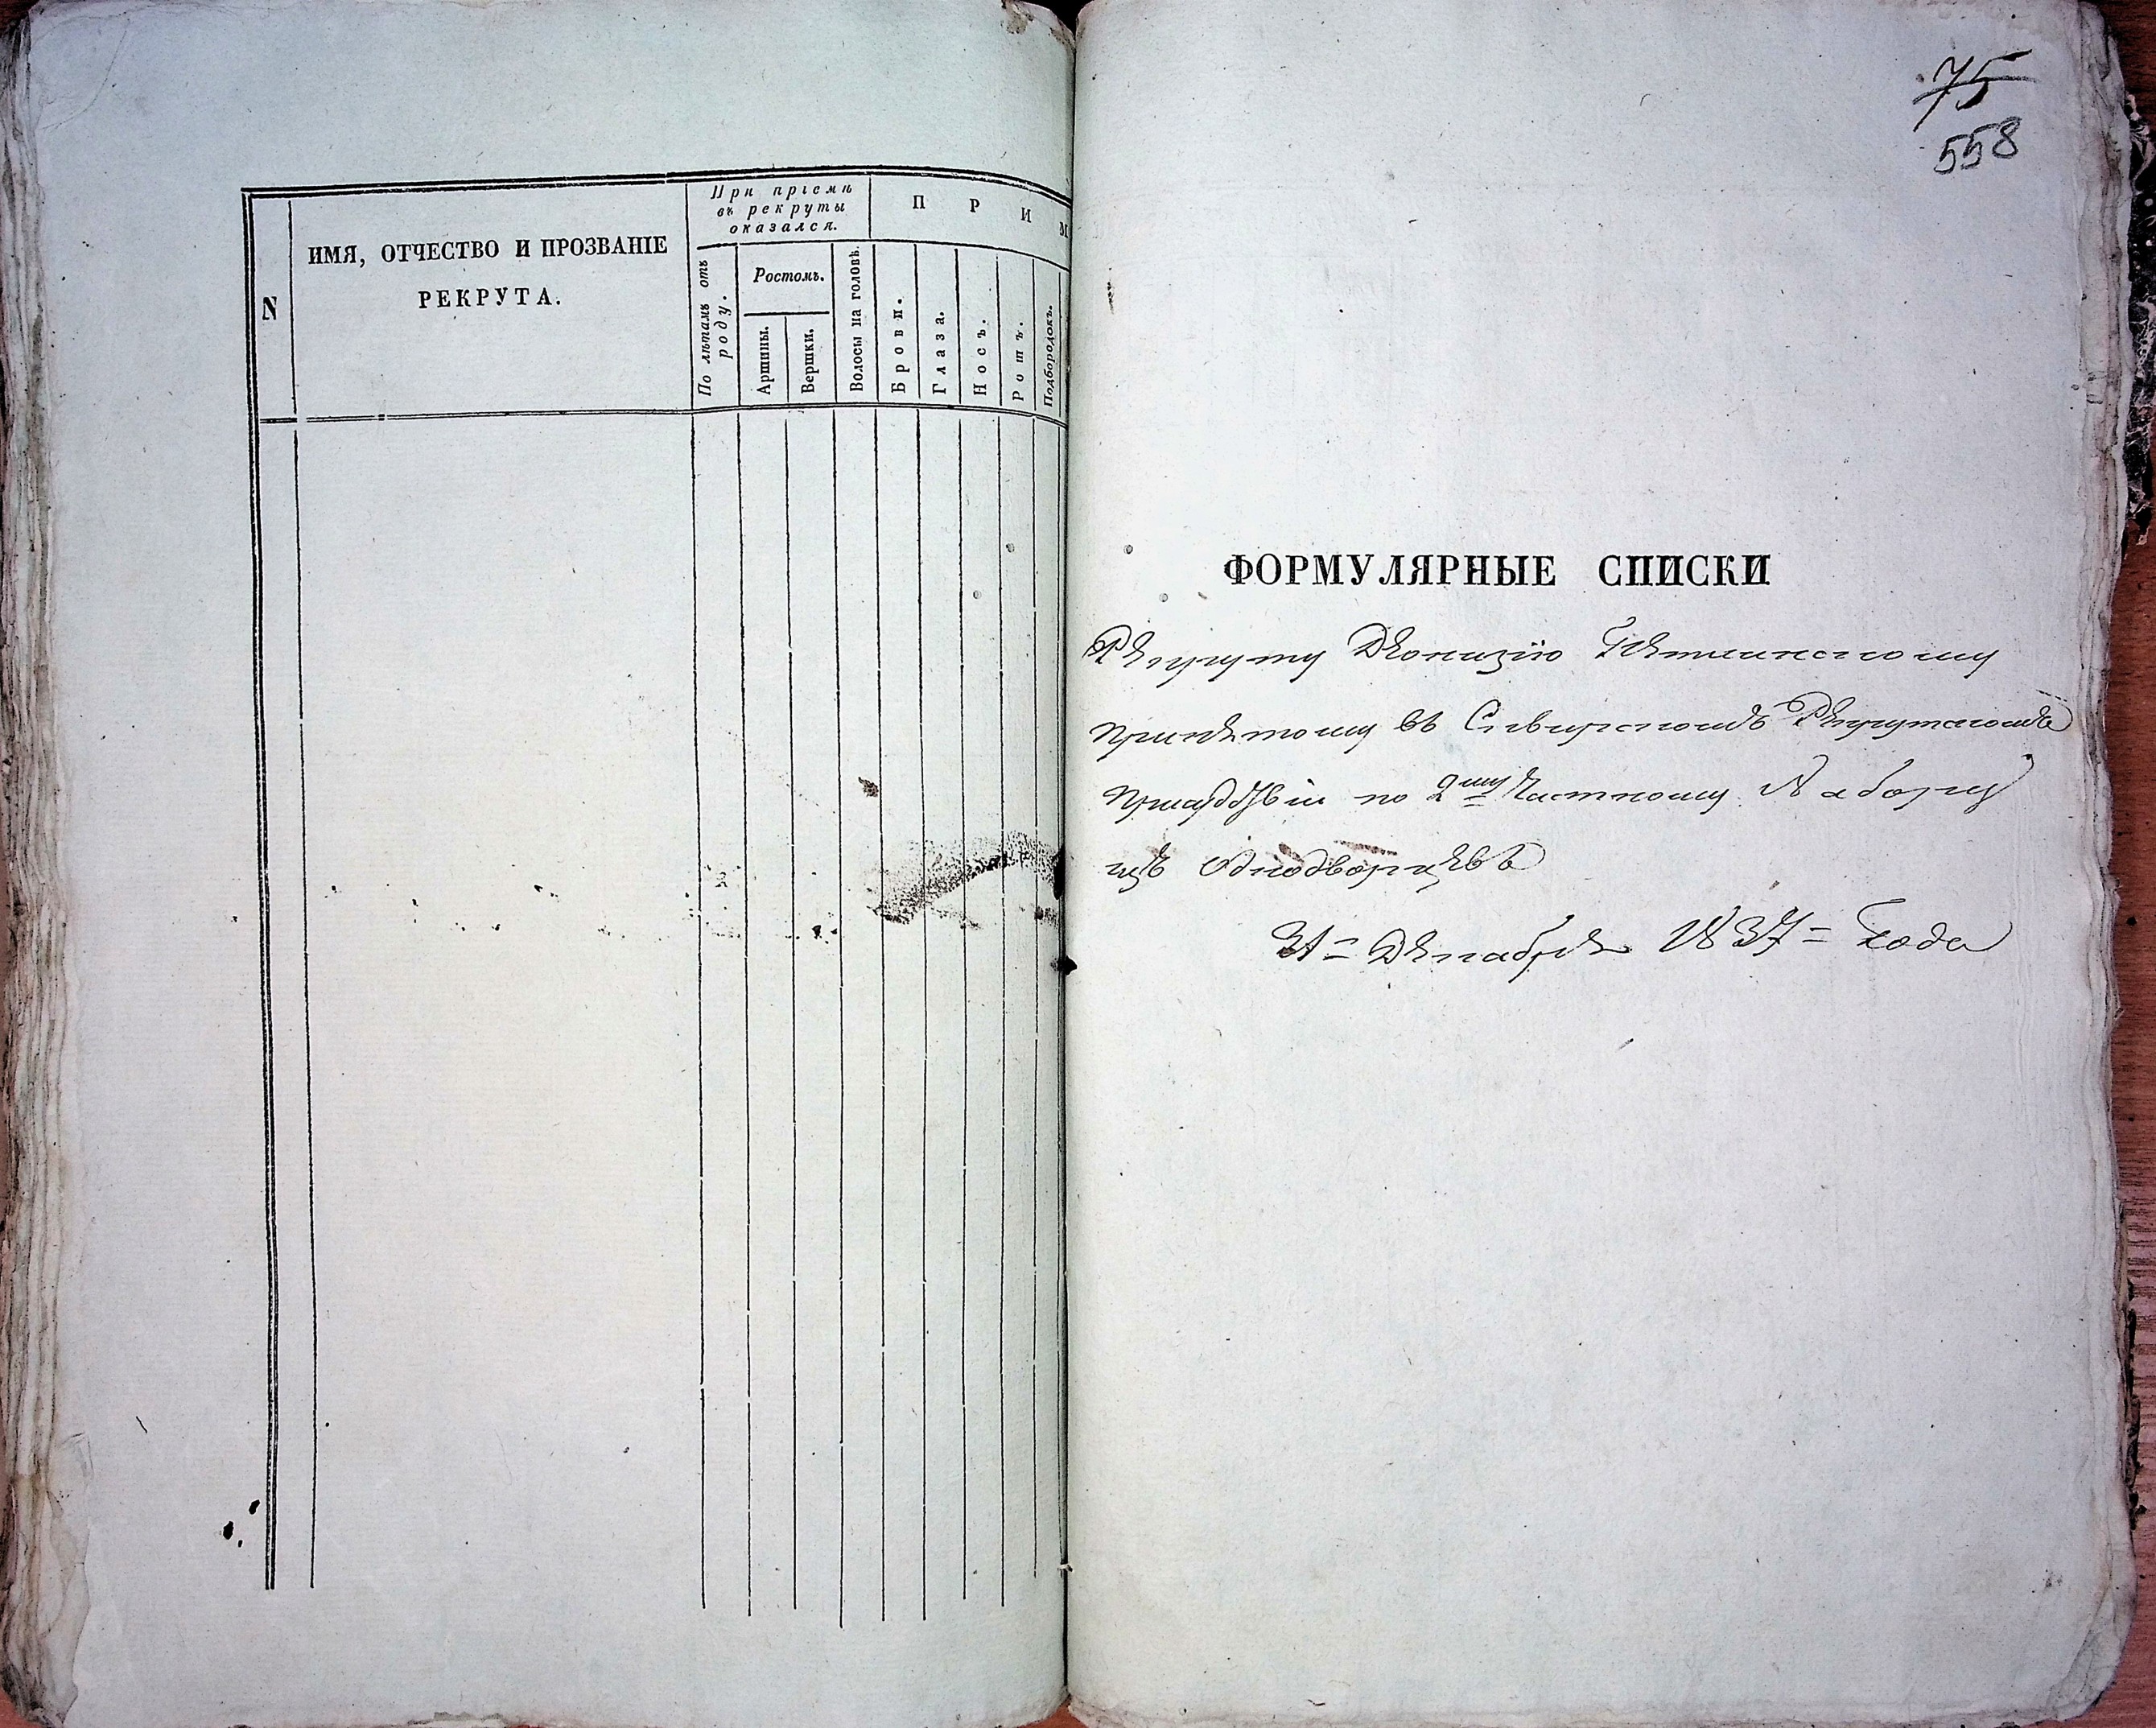 N
ИМЯ, ОТЧЕСТВО И ПРОЗВАНІЕ
РЕКРУТА.
При пріемѣ
въ рекруты
оказался.
По лѣтамъ отъ
роду.
Ростомъ.
Аршины.
Вершки.
Волосы на головѣ.
П Р И М
Брови.
Глаза.
Носъ.
Ротъ.
Подбородокъ.
75
558
ФОРМУЛЯРНЫЕ СПИСКИ
Рекруту Деонизію
принятому въ Сквирскомъ Рекрутскомъ
присудствіи по 2му Частному Набору
изъ однодворцевъ
31 = Декабря 1837 = Года